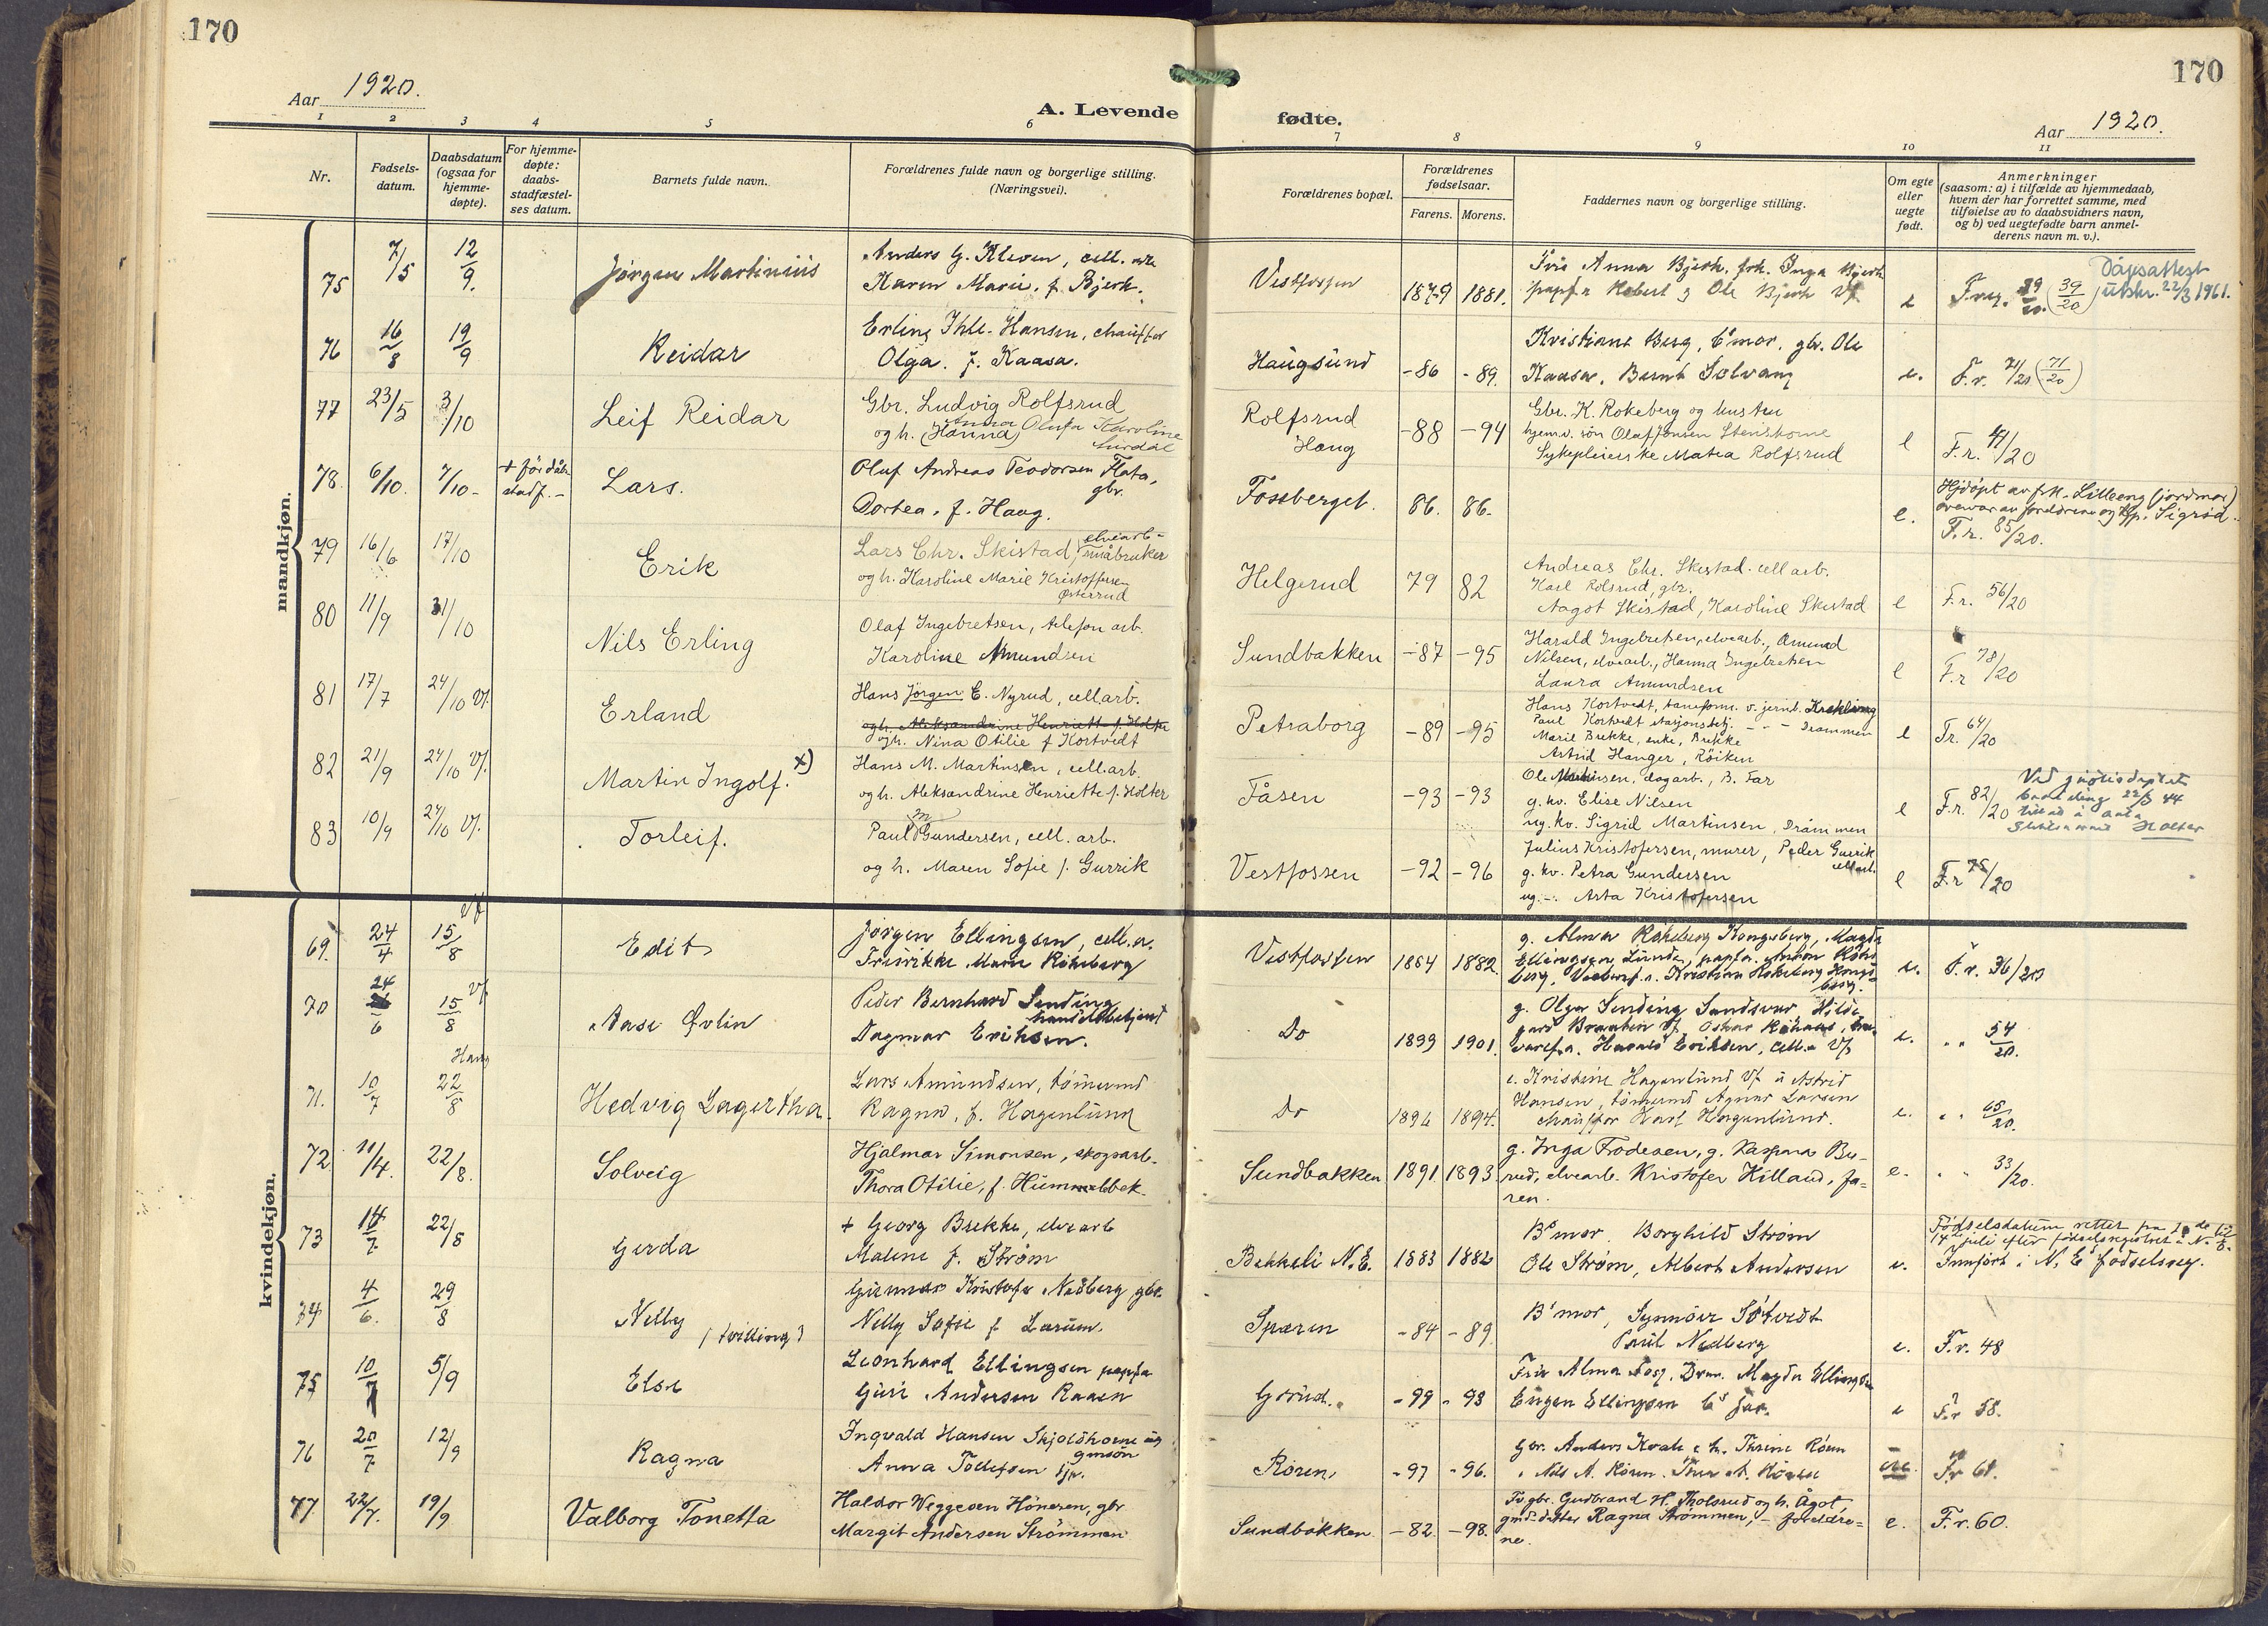 170
170
Aar 1920.
A. Levende fødte.
Aar 1920.
1 2 3 4 5 6 7 8 9 10 11
Nr.
Fødsels-
datum.
Daabsdatum
(ogsaa for
hjemme-
døpte).
For hjemme-
døpte:
daabs-
stadfæstel-
ses datum.
Barnets fulde navn.
Forældrenes fulde navn og borgerlige stilling.
(Næringsvei).
Forældrenes bopæl.
Forældrenes
fødselsaar.
Farens. Morens.
Faddernes navn og borgerlige stilling.
Om egte
eller
uegte
født.
Anmerkninger
(saasom: a) i tilfælde av hjemmedaab,
hvem der har forrettet samme, med
tilføielse av to daabsvidners navn,
og b) ved uegtefødte barn anmel-
derens navn m. v.).
mandkjøn.
75 7/5 12/9. Jørgen Martinius
Anders G. Kleven, cell. arb.
Karen Marie, f. Bjerk.
Vestfossen 1879 1881.
Fru Anna Bjerk, frk. Inga Bjerk
papf.a Robert & Ole Bjerk Vf.
e
(39/20)
Dåpsattest
utskr. 22/3 1961.
76 16/8 19/9 Reidar
Erling Ihle-Hansen, chauffør
Olga. f. Kaasa.
Haugsund -86 -89.
Kristiane Berg, B.mor, gbr. Ole
Kaasa, Bernt Solvang
e. F.r. 71/20 (71/20)
77 23/5 3/10 Leif Reidar
Gbr. Ludvig Rolfsrud
og h. (Hanna) Anna Olufa Karoline
Surdal
Rolfsrud
Haug
-88 -94
Gbr. K. Rokeberg og hustru
hjemv. søn Olaf Jonsen Stenshorne
Sykepleierske Matea Rolfsrud
e F.r. 41/20
78. 6/10. 7/10- + før dåbs
stadf. - Lars.
Oluf Andreas Teodorsen Flata,
gbr.
Dortea, f. Haug.
Fossberget. 86. 86.
e.
Hjdøpt av frk. Lilleeng (jordmor)
F.r. 85/20.
79 16/6 17/10 Erik
Lars Chr. Skistad, elvearb-
småbruker
og h. Karoline Marie Kristoffersen
Østerud
Helgerud 79 82
Andreas Chr. Skistad. cell arb.
Karl Rolsrud, gbr.
Aagot Skistad, Karoline Skistad
e F.r. 56/20
80 11/9 31/10 Nils Erling
Olaf Ingebretsen, telefon arb.
Karoline Amundsen
Sundbakken -87 -95
Harald Ingebretsen, elvearb., Amund
Nilsen, elvearb., Hanna Ingebretsen
Laura Amundsen
e F.r 78/20
81 17/7 24/10 Vf. Erland
Hans Jørgen E. Nyrud, cell arb.
og h. Aleksandrine Henriette f. Holter
og h. Nina Otilie f Kortvedt
Petraborg -89 -95
Hans Kortvedt, baneform. v. jernb. Krekling
Paul Kortvedt stasjonsbetj. - - - Drammen
Marie Brekke, enke, Brekke
Astrid Hanger, Røiken
e Fr. 64/20
82 21/9 24/10 Vf. Martin Ingolf. x)
Hans M. Martinsen, cell.arb.
og h. Aleksandrine Henriette f. Holter
Tåsen -93 -93
Ole Martinsen, dagarb., B. Far
g. kv. Elise Nilsen
ug. kv. Sigrid Martinsen, Drammen
e F.r. 82/20
22/3 44
Holter
83 10/9 24/10 Vf. Torleif.
Paul M Gundersen, cell. arb.
og h. Maren Sofie f. Gurrik
Vestfossen -92 -96
Julius Kristofersen, murer, Peder Gurrik
cell arb.
g. kv. Petra Gundersen
ug. -. Asta Kristofersen
e F.r 75/20
kvindekjøn.
69. 24/4 15/8 Vf Edit
Jørgen Ellingsen, cell. a.
Fredrikke Marie Rokeberg
Vestfossen 1884 1882.
g. Alma Rokeberg Kongsberg, Magda
Ellingsen, Lunde, papf.a. Anton Roke
berg, Kristian Rokeberg Kongs
berg.
e. F.r. 36/20
70 24/6 15/8 Vf. Aase Øvlin
Peder Bernhard Sending
handelsbetjent
Dagmar Eriksen.
Do 1899 1901.
g. Olga Sending Sandsvær, Hilde
gard Braaten Vf,
Harald Eriksen, cell.a Vf.
e. " " 54/20.
71. 10/7 22/8 Haug Hedvig Lagertha.
Lars Amundsen, tømmermd
Ragna, f. Hagenlund
Do 1896 1894.
e. Kristine Hagenlund Vf. u Astrid
Hansen, tømmermd Agnar Larsen
chauffør Karl Hagenlund.
e. " " 65/20.
72 11/4. 22/8. Solveig
Hjalmar Simonsen, skogsarb-
Thora Otilie, f. Hummelbek.
Sundbakken 1891. 1893
g. Inga Frodesen, g. Kaspara Bu-
rud, elvearb. Kristofer Killand, fa-
ren.
e. " " 33/20.
73 14/7 22/8 Gerda
+ Georg Brekke, elvearb
Malene f. Strøm
Bakkeli N.E. 1883 1882
B's mor, Borghild Strøm
Ole Strøm, Albert Andersen
e.
Fødselsdatum rettet fra
14de juli efter fødselsregistret i N. E.
Innført i N. E fødselsreg.
74 4/6. 29/8 Nelly (tvilling)
Gunnar Kristofer Nedberg, gbr.
Nelly Sofie f Larum.
Sparen -84 -89
B's mor, Synnøve Sotvedt
Paul Nedberg
e. F.r. 48
75 10/7 5/9 Else
Leonhard Ellingsen papfa
Guri Andersen Raaen
Gorud. -99 -93
Fru Alma Fosf. Drm. Magda Ellingsen
Eugen Ellingsen B's far.
e F.r 58.
76 20/7 12/9 Ragna
Ingvald Hansen Skjoldhorne ug
gmsøn
Anna Tollefsen tjp.
Røren -97 -96.
Gbr. Anders Kvale & h. Thrine Røren
" Nils A. Røren.
ue. Fr 61.
77. 22/7. 19/9 Valborg Tonetta
Haldor Weggesen Hønsen, gbr
Margit Andersen Strømmen
Sundbakken -82. -98.
Fv. gbr. Gudbrand H. Tholsrud og h. Ågot,
gmd.datter Ragna Strømmen, - foreldre-
ne.
e. F.r. 60.